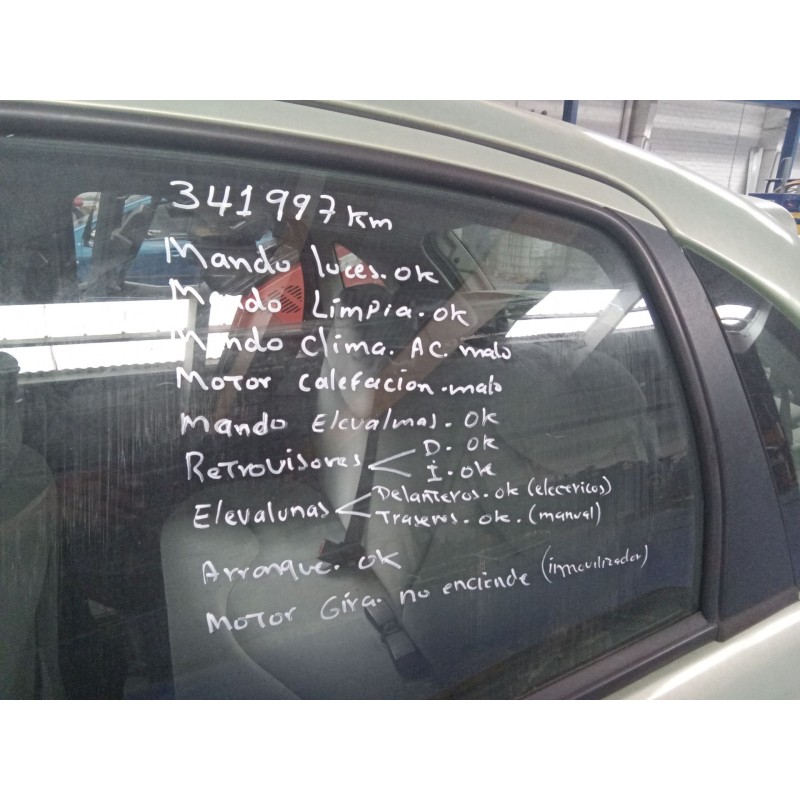 341997 km
Mando luces. ok
Mando Limpia. ok
Mando Clima. AC. malo
Motor Calefacion. malo
Mando Elevalunas. ok
Retrovisores < D. ok
I. ok
Elevalunas < Delanteros. ok (electricos)
Traseros. ok. (manual)
Arranque. ok
Motor Gira. no enciende (inmovilizador)